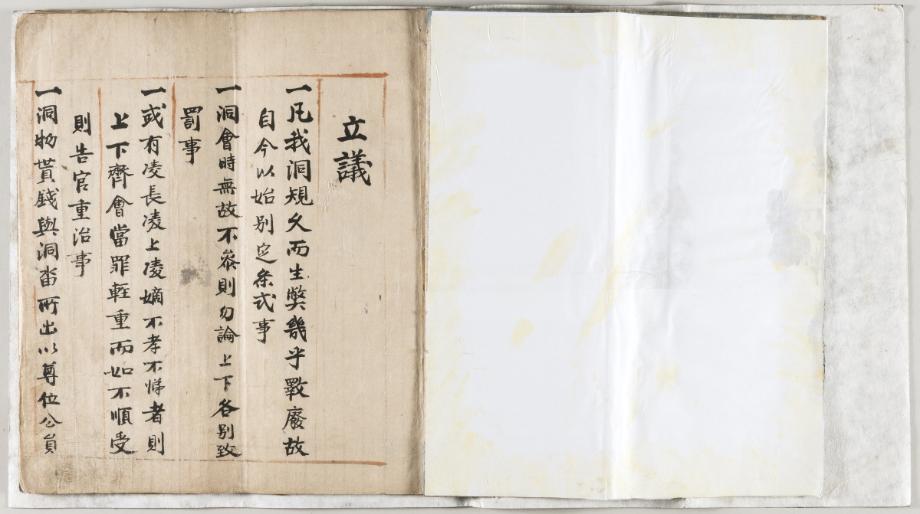 立議
一凡我洞規久而生獘幾乎斁廢故
自今以始別定条式事
一洞會時無故不叅則勿論上下各別致
罰事
一或有凌長凌上凌嫡不孝不悌者則
上下齊會當罪輕重而如不順受
則告官重治事
一洞物貰錢與洞畓所出以尊位公員